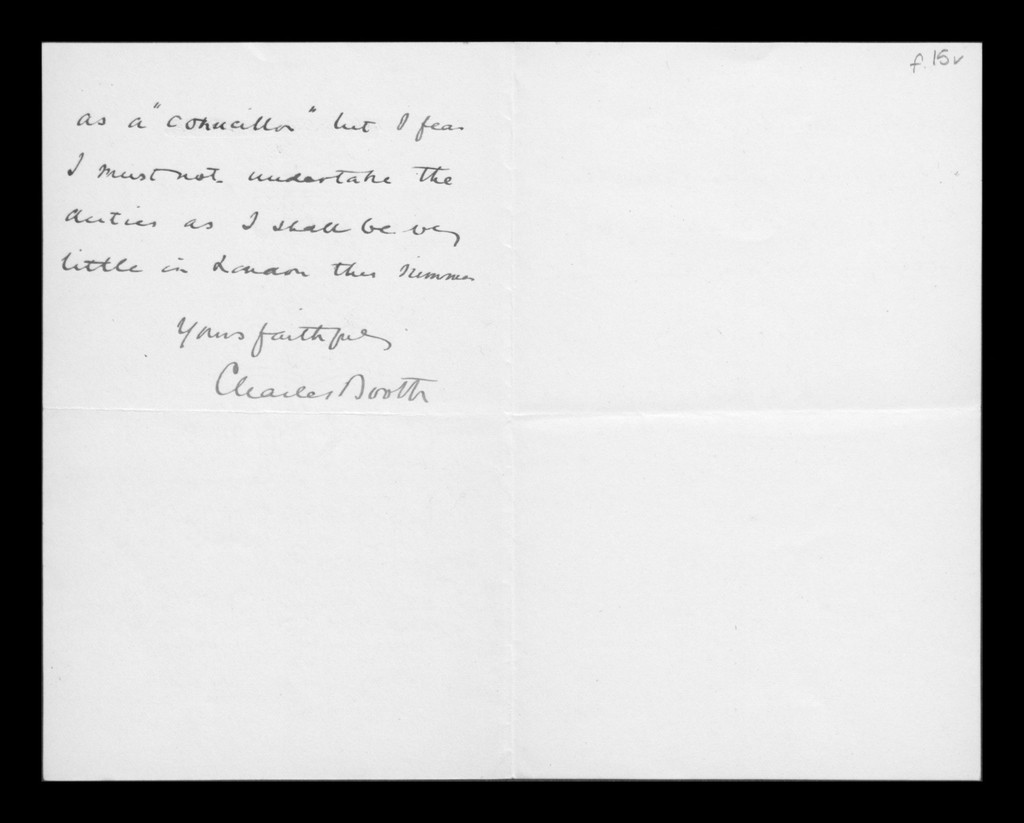 f. 15v
as a "councillor" but I fear
I must not undertake the
duties as I shall be very
little in London this summer
Yours faithfully
Charles Booth